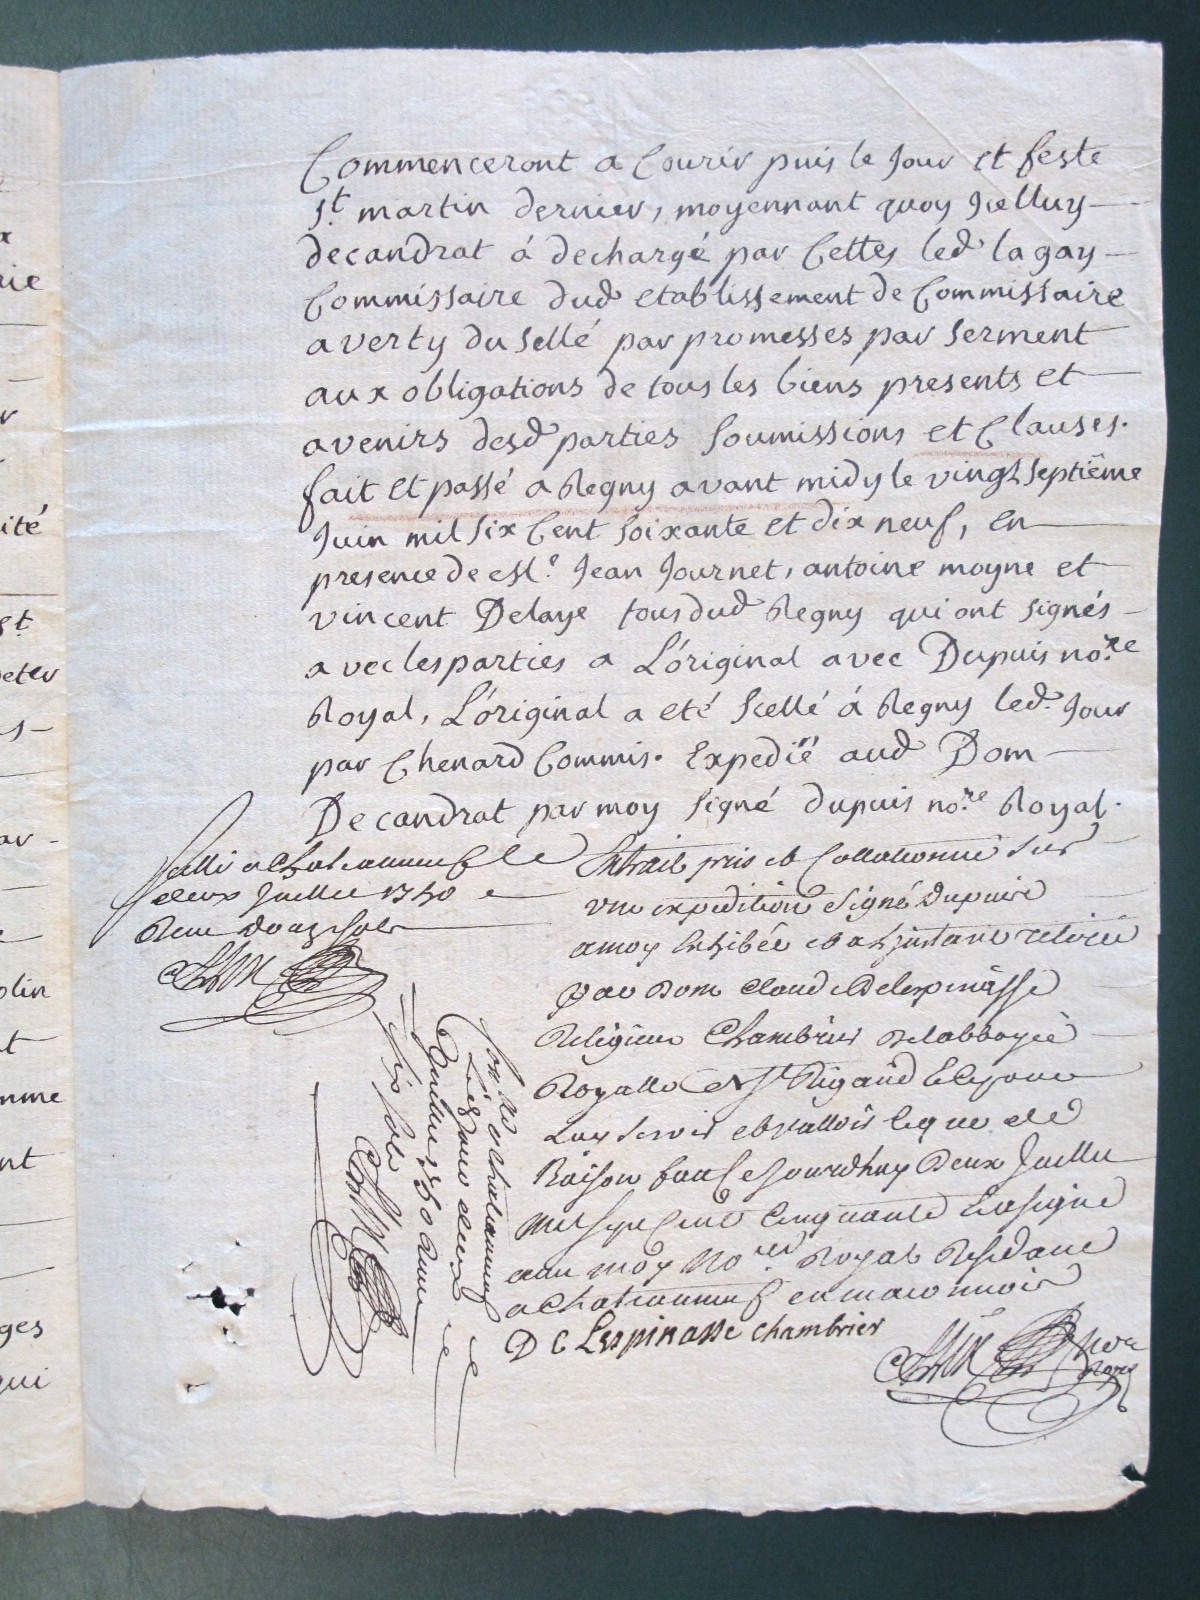 Commenceront a Courir puis le Jour et feste
St. martin dernier, moyennant quoy Icelluy
decandrat á dechargé par Cettes led la gay
Commissaire dud etablissement de Commissaire
averty du sellé par promesses par serment
aux obligations de tous les biens presents et
avenirs desd parties Soumissions et Clauses.
fait et passé a Regny avant midy le vingt septiême
Juin mil six Cent soixante et dix neuf, en
presence de esl.e Jean Journet, antoine moyne et
vincent Delaye tous dud Regny qui ont signés
avec les parties a L'original avec Dupuis no.re
Royal, L'original a eté scellé á Regny led. Jour
par Chenard Commis. Expedié aud Dom
Decandrat par moy signé dupuis no.re Royal.
Extrait pris et Collationné sur
une expedition signé Dupuis
a moy Exhibée et a l'instant retirée
par Dom Claude Delespinásse
Religieux Chambrier de labbayée
Royalle de St Rigaud
Luy servir et valloir ce que de
Raison faut ce Jourdhuy Deux Juillet
mil sept Cent Cinquante et a signé
avec moy No.re Royal Residant
a Chateauneuf en maconnois
D C Lespinasse chambrier
No.re
Royal
a Chateauneuf le
deux Juillet 1750
Reçu douze sols
Con.lé a Chateauneuf
deux
Juillet 1750 Reçu
six sols
x
rie
r
ité
st
peter
s
ar
e
olin
t
mme
nt
ges
qui